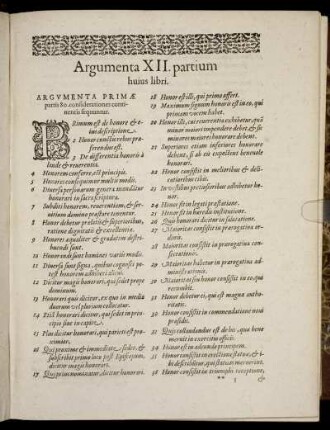 Argumenta XII. partium
huius libri.
ARGVMENTA PRIMÆ
partis 80. considerationes conti-
nentis sequuntur.
PRimum est de honore & e-
ius descriptione.
2 Honor omnibus rebus præ-
ferendus est.
3 De differentia honoris à
laude & reuerentia.
4 Honorem conferre, est principis.
5 Honores consequuntur multis modis.
6 Diuersa personarum genera mandatur
honorari in sacra scriptura.
7 Subditi honorem, reuerentiam, & ser-
uitium domino præstare tenentur.
8 Honor debetur prælatis & superioribus,
ratione dignitatis & excellentiæ.
9 Honores æqualiter & gradatim distri-
buendi sunt.
10 Honorandi sunt homines variis modis.
11 Diuersa sunt signa, quibus cognosci po-
test honorem adhiberi alicui.
12 Dicitur magis honorari, qui iuxta prin-
cipem ambulat.
13 Honorari quis dicitur, ex quo in medio
duorum vel plurium collocatur.
14 Etiã honorari dicitur, qui sedet in prin-
cipio siue in capite.
15 Plus honorari dicitur, qui parieti est pro-
ximior.
16 Qui proxime & immediate sedet, &
subscribit primo loco post Episcopum,
dicitur magis honorari.
17 Qui primo nominatur, dicitur honorari.
18 Honor est illi, qui primo offert.
19 Maximum signum honoris est in eo, qui
primam vocem habet.
20 Honor illi, cui reuerentia exhibetur, quã
minor maiori impendere debet, & si-
ne minores maiores honorare debent.
21 Superiores etiam inferiores honorare
debent, si ab eis expellunt beneuole
honorari.
22 Honor consistit in melioribus & deli-
catioribus cibis.
23 In vestibus preciosioribus adhibetur ho-
nor.
24 Honor sit in legati præstatione.
25 Honor sit in hæredis institutione.
26 Quis honorari dicitur in salutatione.
27 Maioritas consistit in prærogatiua or-
dinis.
28 Maioritas consistit in prærogatiua con-
secrationis.
29 Maioritas habetur in prærogatiua ad-
ministrationis.
30 Maioritas honoris consistit in eo, qui
recumbit.
31 Honor debetur ei, qui est magnæ autho-
ritatis.
32 Honor consistit in commendatione novi
præsidis.
33 Qui collaudandus est de his, quæ bene
meruit in exercitio officii.
34 Honor est in adeundo principem.
35 Honor consistit in erectione statuæ, & i-
bi describitur, quid sit statua, & eius mo-
36 Honor consistit in triumphi receptione,
** 1 &